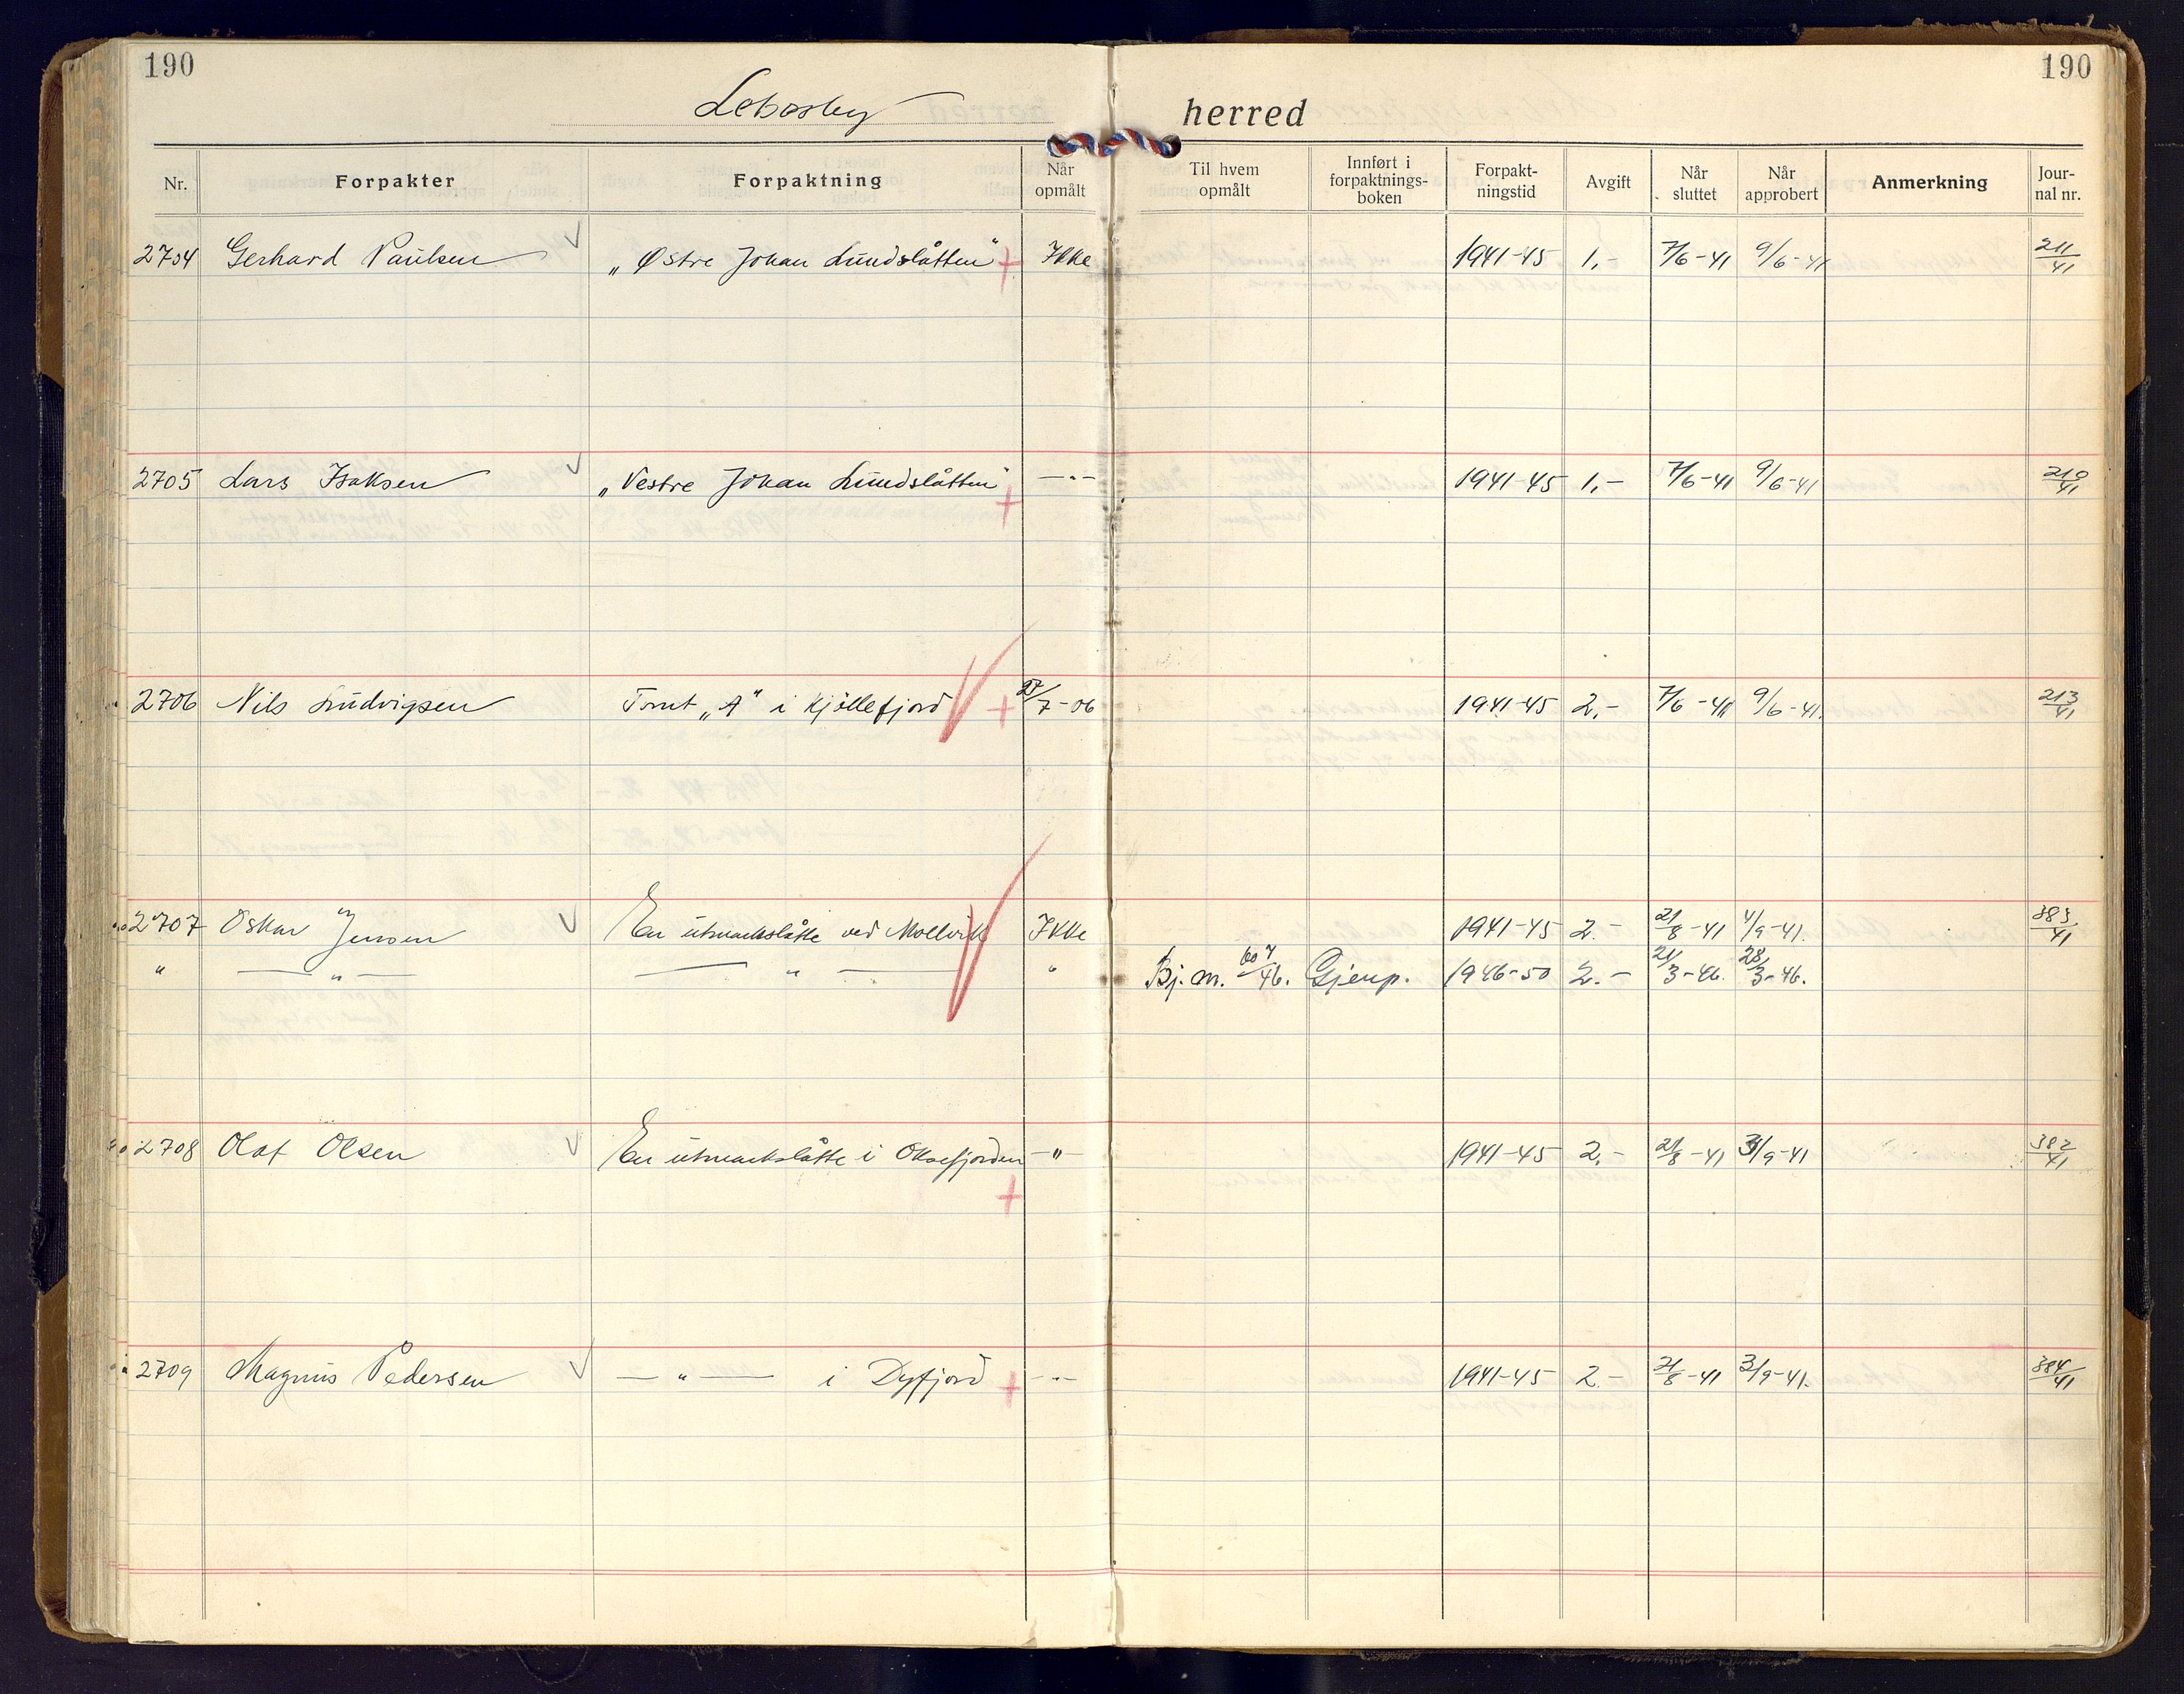 190 190
Lebesby herred
Nr. Forpakter Forpaktning Når opmålt Til hvem opmålt Innført i forpaktnings-boken Forpakt-ningstid Avgift Når sluttet Når approbert Anmerkning Jour-nal nr.
2704 Gerhard Paulsen „Østre Johan Lundslåtten" Ikke 1941-45 1,- 7/6-41 9/6-41 211/41
2705 Lars Isaksen „Vestre Johan Lundslåtten" —"— 1941-45 1,- 7/6-41 9/6-41 210/41
2706 Nils Ludvigsen Tomt „A" i Kjöllefjord 7-06 1941-45 2,- 7/6-41 9/6-41. 213/41
2707 Oskar Jensen En utmarkslåtte ved Mollvik Ikke 1941-45 2.- 21/8-41 4/9-41. 383/41
" —"— —"— " Bj. m. 46. Gjenp. 1946-50 2.- 21/3-46. 28/3-46.
2708 Olaf Olsen En utmarkslåtte i Oksefjorden —"— 1941-45 2,- 21/8-41 3/9-41 382/41
2709 Magnus Pedersen —"— i Dyfjord —"— 1941-45 2.- 21/8-41 3/9-41. 384/41